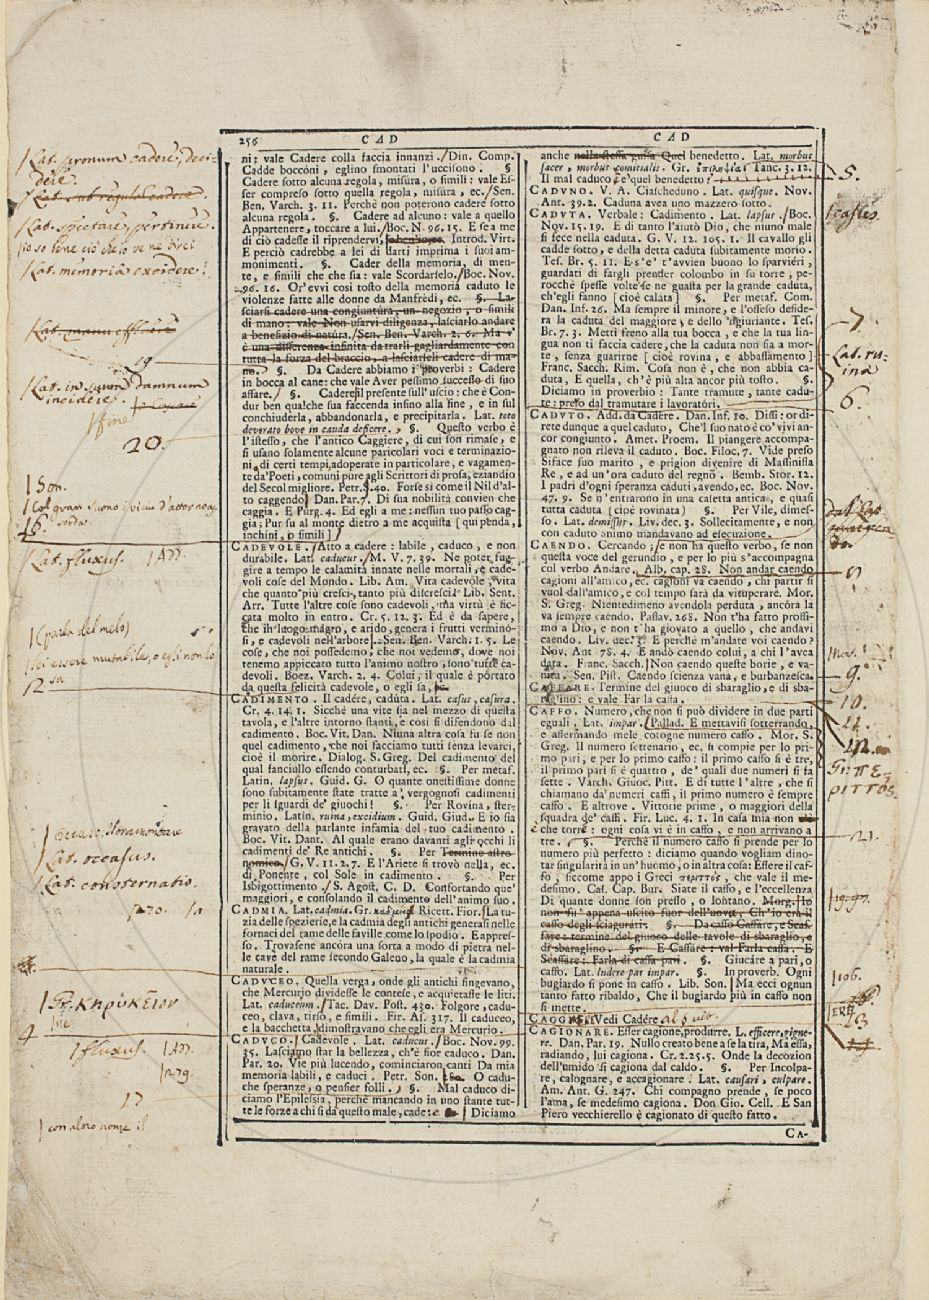 256 CAD CAD
ni: vale Cadere colla faccia innanzi. Din. Comp.
Cadde boccóni, eglino smontati l'uccisono. §
Cadére sotto alcuna regola, misúra, o simili: vale Es-
ser compreso sotto quella regola, misúra, ec. Sen.
Ben. Varch. 3. 11. Perchè non poterono cadere sotto
alcuna regola. §. Cadére ad alcuno: vale a quello
Appartenere, toccare a lui. Boc. N. 96. 15. E se a me
di ciò cadesse il riprendervi, Introd. Virt.
E perciò cadrebbe a lei di darti imprima i suoi am-
monimenti. §. Cader della memoria, di men-
te, e simili che che sia: vale Scordarselo. Boc. Nov.
96. 16. Or'evvi così tosto della memoria caduto le
violenze fatte alle donne da Manfrédi, ec. §. La-
sciarsi cadere una congiuntúra, un negozio, o simili
di mano: vale Non usarvi diligenza, lasciarlo andare
a benefizio di natúra. Sen. Ben. Varch. 2. 6. Ma v'
è una differenza infinita da trarli gagliardamente con
tutta la forza del braccio, a lasciarseli cadere di ma-
no. §. Da Cadere abbiamo i proverbi: Cadere
in bocca al cane: che vale Aver pessimo successo di suo
affare. §. Cadere il presente sull'uscio: che è Con-
dur ben qualche sua faccenda insino alla fine, e in sul
conchiuderla, abbandonarla, e precipitarla. Lat. toto
devorato bove in cauda deficere. §. Questo verbo è
l'istesso, che l'antico Caggiere, di cui son rimase, e
si usano solamente alcune paricolari voci e terminazio-
ni di certi tempi, adoperate in particolare, e vagamen-
te da'Poeti, comuni pure agli Scrittori di prosa, eziandio
del Secol migliore. Petr. 40. Forse si come il Nil d'al-
to caggendo Dan. Par. 7. Di sua nobilità convien che
caggia. E Purg. 4. Ed egli a me: nessun tuo passo cag-
gia; Pur su al monte dietro a me acquista [qui penda,
inchini, o simili]
CADEVOLE. Atto a cadere: labile, caduco, e non
durabile. Lat. caducus. M. V. 7. 39. Ne poter fug-
gire a tempo le calamità innate nelle mortali, e cade-
voli cose del Mondo. Lib. Am. Vita cadévole, vita
che quanto più cresci, tanto più discresci. Lib. Sent.
Arr. Tutte l'altre cose sono cadevoli, ma virtù è fic-
cata molto in entro. Cr. 5. 12. 3. Ed è da sapere,
che in luogo magro, e arido, genera i frutti verminó-
si, e cadevoli nell'arbore. Sen. Ben. Varch. 1. 5. Le
cose, che noi possedemo, che noi vedemo, dove noi
tenemo appiccato tutto l'animo nostro, sono tutte ca-
devoli. Boez. Varch. 2. 4. Colui, il quale è pórtato
da questa felicità cadevole, o egli sa,
CADIMENTO. Il cadére, cadúta. Lat. casus, casura.
Cr. 4. 14. 1. Sicchè una vite sia nel mezzo di questa
tavola, e l'altre intorno stanti, e così si difendono dal
cadimento. Boc. Vit. Dan. Niuna altra cosa fu se non
quel cadimento, che noi facciamo tutti senza levarci,
cioè il morire. Dialog. S. Greg. Del cadimento del
qual fanciullo essendo conturbati, ec. §. Per metaf.
Latin. lapsus. Guid. G. O quante onestissime donne
sono subitamente state tratte a' vergognosi cadimenti
per li sguardi de' giuochi! §. Per Rovina, ster-
minio. Latin. ruina, excidium. Guid. Giud. E io sia
gravato della parlante infamia del tuo cadimento.
Boc. Vit. Dant. Al quale erano davanti agli occhi li
cadimenti de' Re antichi. §. Per Termine astro-
nomico. G. V. 11. 2. 7. E l'Ariete si trovò nella, ec.
di Ponente, col Sole in cadimento. §. Per
Isbigottimento. S. Agost. C. D. Confortando que'
maggiori, e consolando il cadimento dell'animo suo.
CADMIA. Lat. cadmia. Gr. καδμεία Ricett. Fior. La tu-
zia delle spezierie, e la cadmia degli antichi generasi nelle
fornaci del rame delle faville come lo spodio. E appres-
so. Trovasene ancóra una sorta a modo di pietra nel-
le cave del rame secondo Galeno, la quale è la cadmia
naturale.
CADUCEO. Quella verga, onde gli antichi fingevano,
che Mercurio dividesse le contese, e acquietasse le liti.
Lat. caduceum. Tac. Dav. Post. 430. Folgore, cadu-
ceo, clava, tirso, e simili. Fir. As. 317. Il caducéo,
e la bacchetta dimostravano che egli era Mercurio.
CADUCO. Cadevole. Lat. caducus. Boc. Nov. 99.
35. Lasciamo star la bellezza, ch'è fior caduco. Dan.
Par. 20. Vie più lucendo, cominciaron canti Da mia
memoria labili, e caduci. Petr. Son. O cadu-
che speranze, o pensier folli. §. Mal caduco di-
ciamo l'Epilessia, perchè mancando in uno stante tut-
te le forze a chi si da questo male, cade: Diciamo
anche nella stessa guisa Quel benedetto. Lat. morbus
sacer, morbus comitialis. Gr. ἐπιληψία Tanc. 3. 12.
Il mal caduco, e'quel benedetto!
CADUNO. V. A. Ciascheduno. Lat. quisque. Nov.
Ant. 39. 2. Caduna avea uno mazzero sotto.
CADUTA. Verbale: Cadimento. Lat. lapsus. Boc.
Nov. 15. 19. E di tanto l'aiutò Dio, che niuno male
si fece nella caduta. G. V. 12. 105. 1. Il cavallo gli
cadde sotto, e della detta caduta subitamente morio.
Tes. Br. 5. 11. E s'e' t'avvien buono lo sparviéri,
guardati di fargli prender colombo in su torre, pe-
rocchè spesse volte se ne guasta per la grande caduta,
ch'egli fanno [cioè calata] §. Per metaf. Com.
Dan. Inf. 26. Ma sempre il minore, e l'offeso deside-
ra la caduta del maggiore, e dello 'ngiuriante. Tes.
Br. 7. 3. Metti freno alla tua bocca, e che la tua lin-
gua non ti faccia cadere, che la caduta non sia a mor-
te, senza guarirne [cioè rovina, e abbassamento]
Franc. Sacch. Rim. Cosa non è, che non abbia ca-
duta, E quella, ch'è più alta ancor più tosto. §.
Diciamo in proverbio: Tante tramute, tante cadu-
te: preso dal tramutare i lavoratóri.
CADUTO. Add. da Cadere. Dan. Inf. 10. Dissi: or di-
rete dunque a quel caduto, Che'l suo nato è co'vivi an-
cor congiunto. Amet. Proem. Il piangere accompa-
gnato non rileva il caduto. Boc. Filoc. 7. Vide preso
Siface suo marito, e prigion divenire di Massinissa
Re, e ad un'ora caduto del regno. Bemb. Stor. 12.
I padri d'ogni speranza caduti, avendo, ec. Boc. Nov.
47. 9. Se n'entrarono in una casetta antica, e quasi
tutta caduta (cioè rovinata) §. Per Vile, dimes-
so. Lat. demissus. Liv. dec. 3. Sollecitamente, e non
con caduto animo mandavano ad esecuzione.
CAENDO. Cercando; se non ha questo verbo, se non
questa voce del gerundio, e per lo più s'accompagna
col verbo Andare. Alb. cap. 28. Non andar caendo
cagioni all'amico, ec. cagioni va caendo, chi partir si
vuol dall'amico, e col tempo sarà da vituperare. Mor.
S. Greg. Nientedimeno avendola perduta, ancóra la
va sempre caendo. Passav. 268. Non t'ha fatto prossi-
mo a Dio, e non t'ha giovato a quello, che andavi
caendo. Liv. dec. 3. E perchè m'andate voi caendo?
Nov. Ant. 78. 4. E andò caendo colui, a chi l'avea
data. Franc. Sacch. Non caendo queste borie, e va-
nità. Sen. Pist. Caendo scienza vana, e burbanzesca.
CAFFARE. Termine del giuoco di sbaraglio, e di sba-
raglino: e vale Far la caffa.
CAFFO. Numero, che non si può dividere in due parti
eguali, Lat. impar. Pallad. E mettavisi sotterrando,
e affermando mele cotogne numero caffo. Mor. S.
Greg. Il numero settenario, ec. si compie per lo pri-
mo pari, e per lo primo caffo: il primo caffo si è tre,
il primo pari si è quattro, de' quali due numeri si fa
sette. Varch. Giuoc. Pitt. E di tutte l'altre, che si
chiamano da' numeri caffi, il primo numero è sempre
caffo. E altrove. Vittorie prime, o maggiori della
squadra de' caffi. Fir. Luc. 4. 1. In casa mia non
è che torre: ogni cosa vi è in caffo, e non arrivano a
tre. §. Perchè il numero caffo si prende per lo
número più perfetto: diciamo quando vogliam dino-
tar singularità in un'huomo, o in altra cosa: Essere il caf-
fo, siccome appo i Greci περιττός, che vale il me-
desimo. Caf. Cap. Bur. Siate il caffo, e l'eccellenza
Di quante donne son presso, o lontano. Morg. Io
non su' appena uscito fuor dell'uova, Ch'io era il
caffo degli sciagurati. §. Da caffo Caffare, e Scaf-
fare: termine del giuoco delle tavole di sbaraglio, e
di sbaraglino. §. E Caffare: val Farla caffa. E
Scaffare: Farla di caffa pari. §. Giucáre a pari, o
caffo. Lat. ludere par impar. §. In proverb. Ogni
bugiardo si pone in caffo. Lib. Son. Ma ecci ognun
tanto fatto ribaldo, Che il bugiardo più in caffo non
si mette.
Vedi Cadére
CAGIONARE. Esser cagione, produrre. L. efficere, gigne-
re. Dan. Par. 19. Nullo creato bene a se la tira, Ma essa,
radiando, lui cagiona. Cr. 2. 25. 5. Onde la decozion
dell'umido si cagiona dal caldo. §. Per Incolpa-
re, calognare, e accagionare. Lat. causari, culpare.
Am. Ant. G. 247. Chi compagno prende, se poco
l'ama, se medesimo cagiona. Don Gio. Cell. E San
Piero vecchierello è cagionato di questo fatto.
CA-
Lat. pronum cadere, deci-
dere.
Lat. sub regulā cadere.
Lat. spectare, pertinere.
Lat. memoriā excidere.
19
Lat. in suum damnum
incidere.
fine
20.
Son.
Lat. fluxus. Add.
(parla del melo)
Lat. occasus.
Lat. consternatio.
Gr. κηρύκειον
4
fluxus. Add.
17
con altro nome il
5.
casus.
7.
Lat. ru-
ina
6.
9.
10.
11.
12.
21.
106.